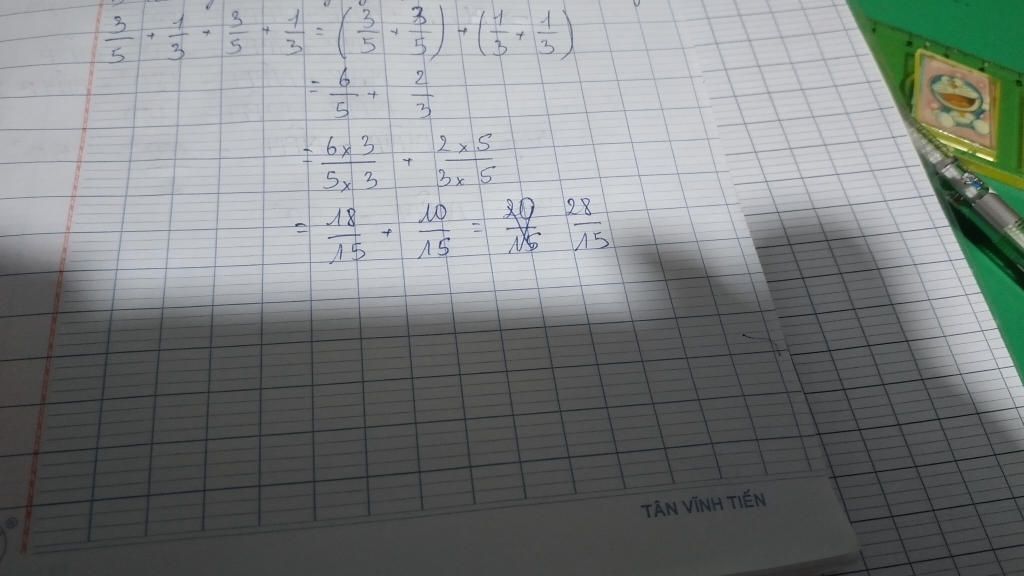 3/5 + 1/3 + 3/5 + 1/3 = (3/5 + 3/5) + (1/3 + 1/3)
= 6/5 + 2/3
= 6x3/5x3 + 2x5/3x5
= 18/15 + 10/15 = 28/15
TÂN VĨNH TIẾN